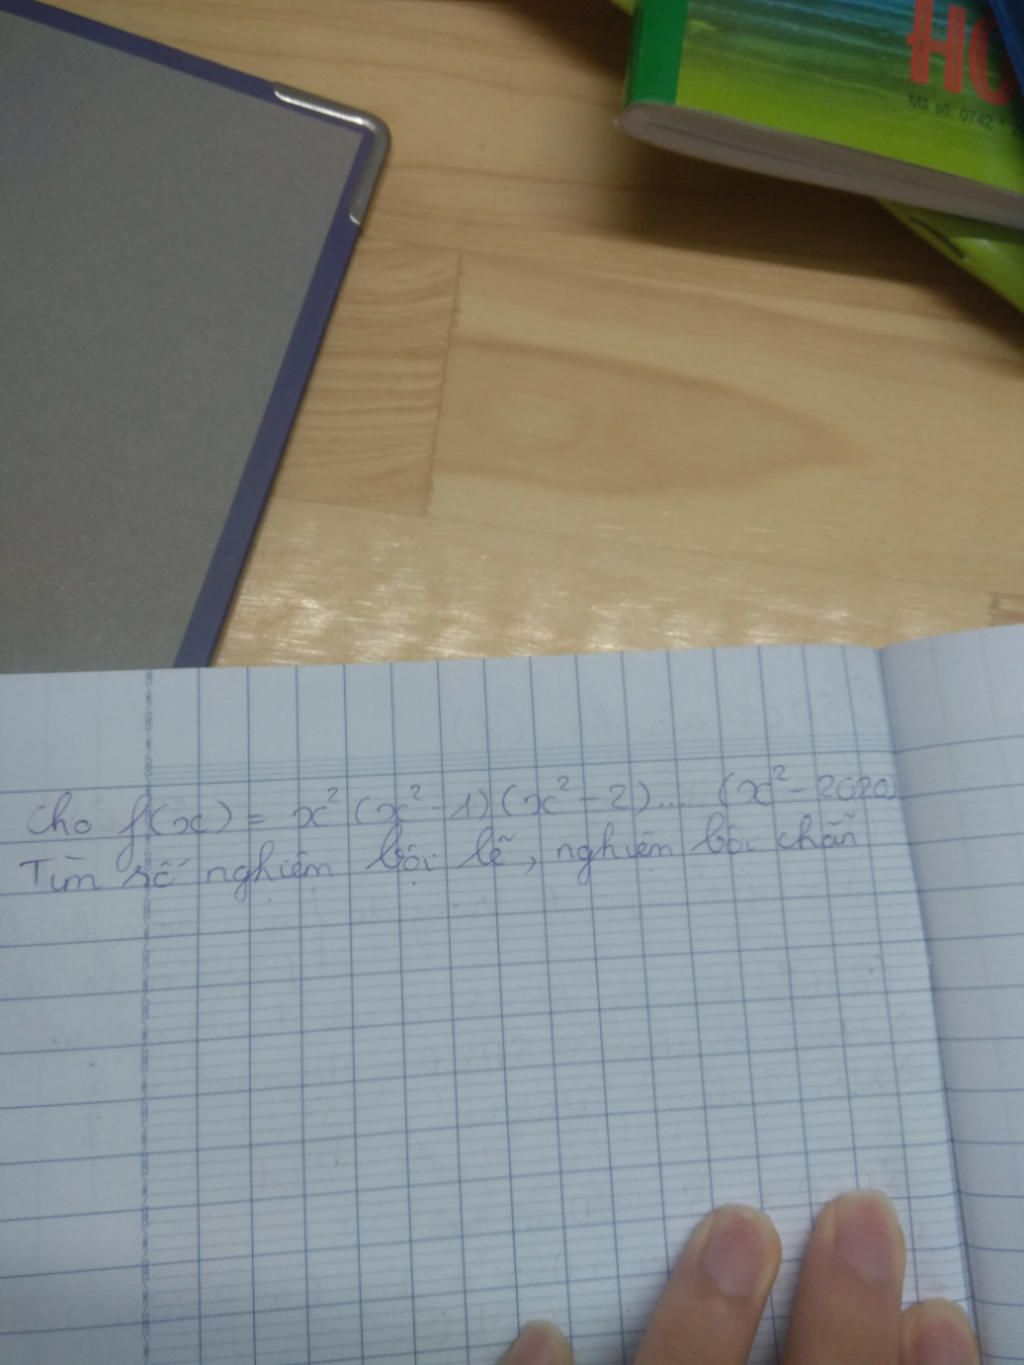 HO
Mã số: 0742
Cho f(x) = x² (x² - 1)(x² - 2).... (x² - 2020)
Tìm số nghiệm bội lẽ, nghiệm bội chẵn